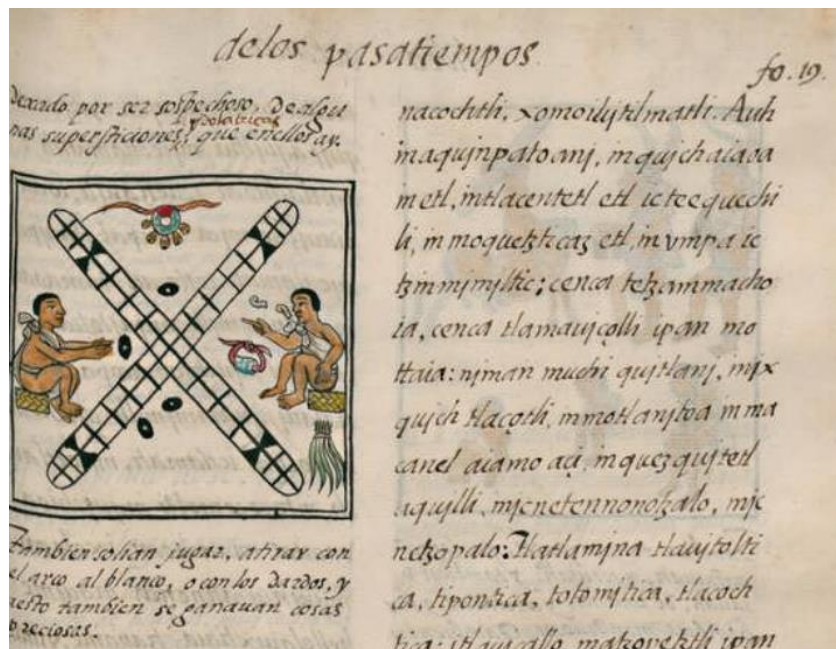 delos pasatiempos
fo. 19.
dexado por ser sospechoso, de algu
nas supersticiones, ydolatricas que enellos ay.
tambien solian jugar, atirar con
el arco al blanco, o con los dardos, y
aesto tambien se ganauan cosas
preciosas.
nacochtli, xomoilhtilmatli. Auh
inaquinpatoanj, in quichaiaoa
in etl, intlacentetl etl ic teequechi
li, in moquetzticaz etl, in vmpa ic
tzinmimiltic; cenca tetzammacho
ia, cenca tlamauiçolli ipan mo
ttaia: njman muchi quitlanj, inix
quich tlaçotli, in motlanitoa in ma
canel aiamo aci, in quezquitetl
aquilli, mjc netennonotzalo, mjc
netzopalo: Tlatlamina tlauitolti
ca, tipontica, totomitica, tlacoch
tica: itlauicallo, matzopetztli ipan